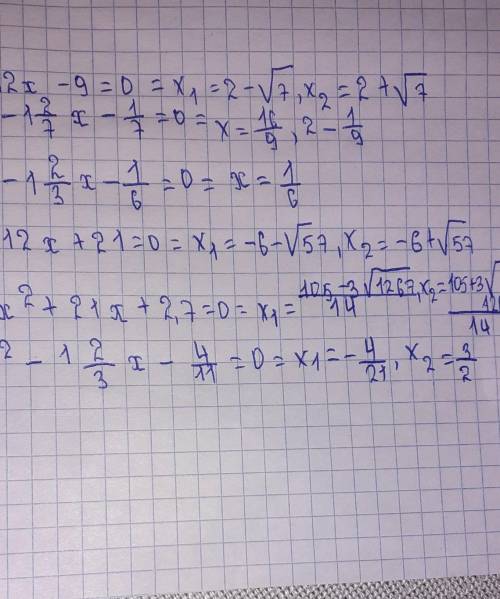 2x - 9 = 0 = x₁ = 2 - √7, x₂ = 2 + √7
- 1 2/7 x - 1/7 = 0 = x = 16/9, 2 - 1/9
- 1 2/3 x - 1/6 = 0 = x = 1/6
12x + 21 = 0 = x₁ = -6 - √57, x₂ = -6 + √57
x² + 21x + 2,7 = 0 = x₁ = (105 - 3√1267)/14, x₂ = (105 + 3√12)/14
² - 1 2/3 x - 4/11 = 0 = x1 = - 4/21, x₂ = 3/2